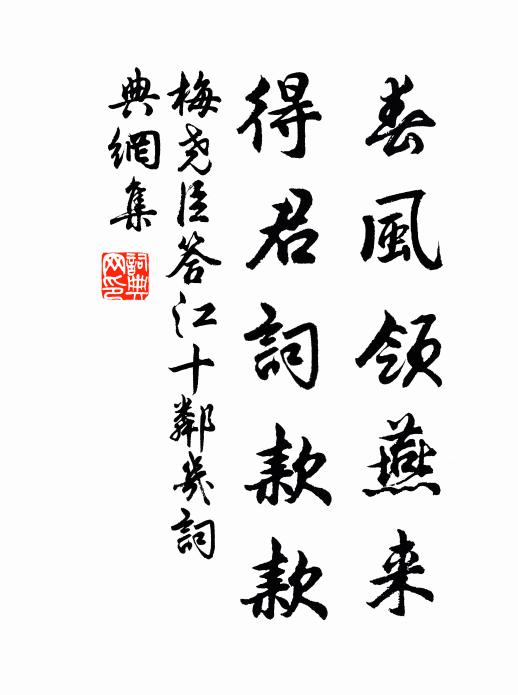 春風領燕来
得君詞款款
梅尧臣答江十鄰幾詞
典網集
詞典网印